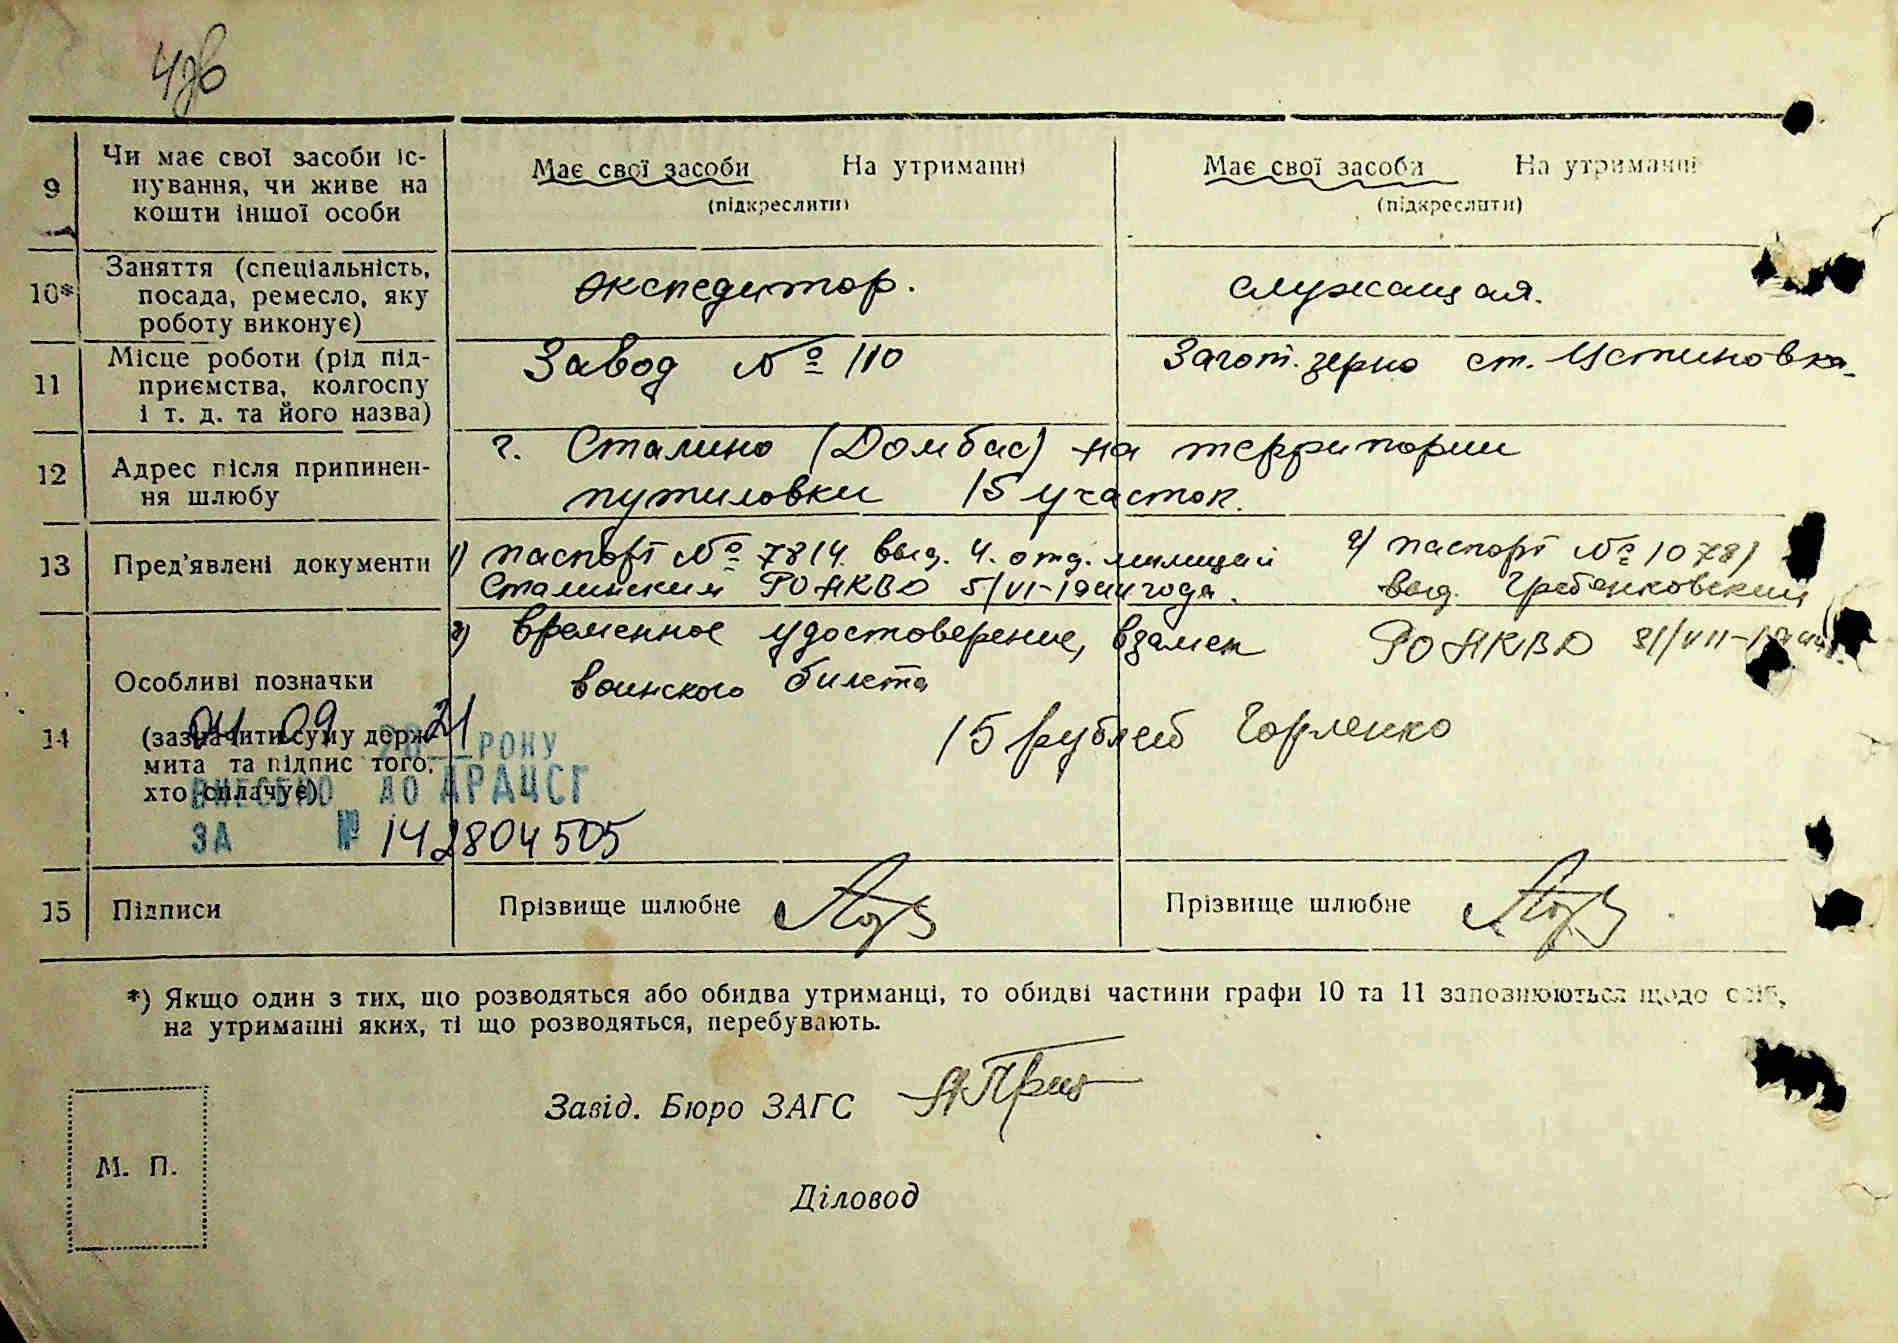 4 зв
9
Чи має свої засоби іс-
нування, чи живе на
кошти іншої особи
Має свої засоби На утриманні
(підкреслити)
Має свої засоби На утриманні
(підкреслити)
10*
Заняття (спеціальність,
посада, ремесло, яку
роботу виконує)
экспедитор.
служащая.
11
Місце роботи (рід під-
приємства, колгоспу
і т. д. та його назва)
Завод № 110
Загот. зерно ст. Устиновка
12
Адрес після припинен-
ня шлюбу
г. Сталино (Домбас) на территории
путиловки 15 участок.
13
Пред'явлені документи
1) паспорт № 7814 выд. 4. отд. милиции
Сталинским РО НКВД 5/VI-1944 года.
2) временное удостоверение, взамен
воинского билета
2) паспорт № 10781
выд. Гребенковский
РО НКВД 21/VII-1944
14
Особливі позначки
(зазначити суму держ-
мита та підпис того,
хто сплачує)
15 рублей Горленко
04 09 2021 РОКУ
ВНЕСЕНО ДО ДРАЦСГ
ЗА № 142804505
15
Підписи
Прізвище шлюбне
Прізвище шлюбне
*) Якщо один з тих, що розводяться або обидва утриманці, то обидві частини графи 10 та 11 заповнюються щодо осіб,
на утриманні яких, ті що розводяться, перебувають.
Завід. Бюро ЗАГС
М. П.
Діловод